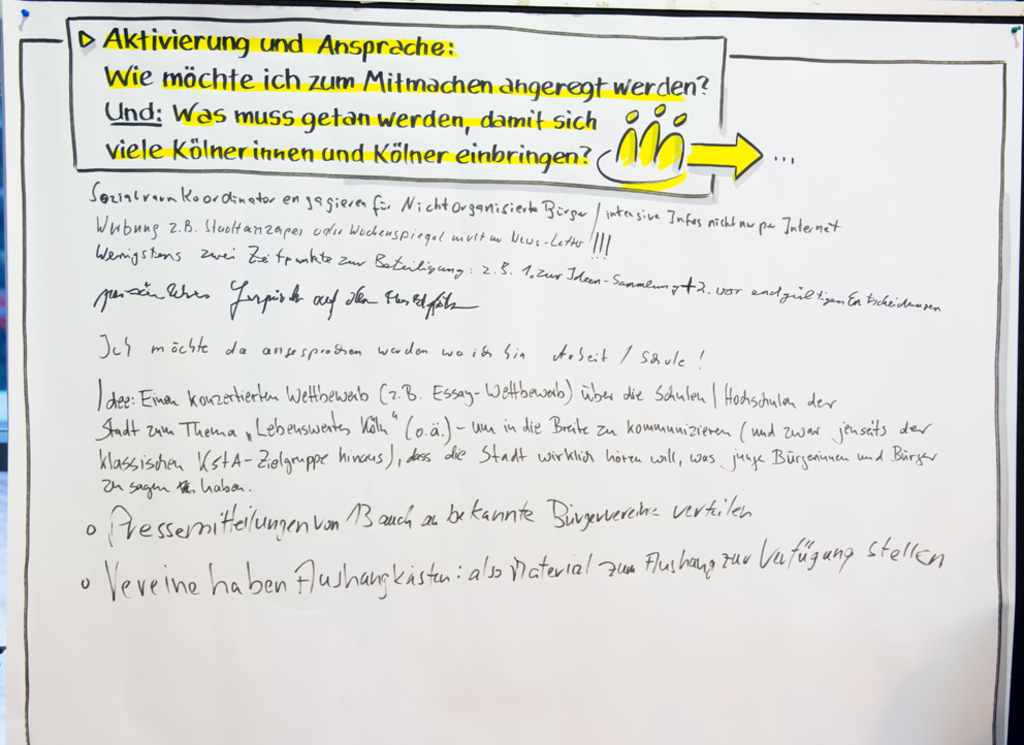 ▷ Aktivierung und Ansprache:
Wie möchte ich zum Mitmachen angeregt werden?
Und: Was muss getan werden, damit sich
viele Kölnerinnen und Kölner einbringen?
...
Sozialraum Koordinatoren engagieren für Nichtorganisierte Bürger / intensive Infos nicht nur per Internet
Werbung z.B. Stadtanzeiger oder Wochenspiegel nicht nur News-Letter !!!
Wenigstens zwei Zeitpunkte zur Beteiligung: z.B. 1. zur Ideen-Sammlung + 2. vor endgültigen Entscheidungen
persönliches Gespräch auf dem
Ich möchte da angesprochen werden wo ich bin Arbeit / Schule!
Idee: Einen konzertierten Wettbewerb (z.B. Essay-Wettbewerb) über die Schulen / Hochschulen der
Stadt zum Thema „Lebenswertes Köln" (o.ä.) - um in die Breite zu kommunizieren (und zwar jenseits der
klassischen KStA-Zielgruppe hinaus), dass die Stadt wirklich hören will, was junge Bürgerinnen und Bürger
zu sagen haben.
o Pressemitteilungen von 13 auch an bekannte Bürgervereine verteilen
o Vereine haben Aushangkästen: also Material zum Aushang zur Verfügung stellen